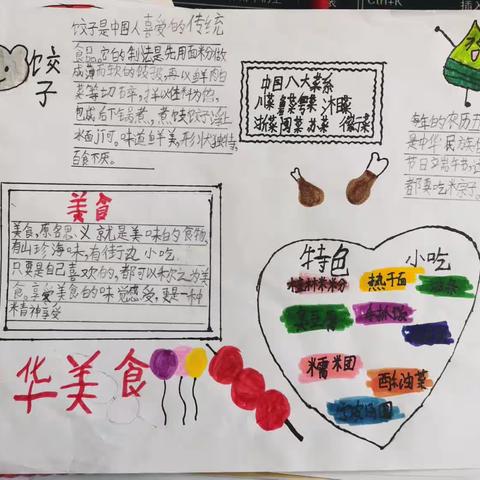 饺子是中国人喜爱的传统
食品,它的制法是先用面粉做
成薄而软的饺皮,再以鲜肉白
菜等切碎,拌以佐料为馅,
包成后下锅煮,煮饺子浮上
水面
味道鲜美,形状独特,
百食不厌。
饺子
中国八大菜系
川菜 鲁菜 粤菜
浙菜 闽菜 苏菜 徽菜
每年的农历五
是中华民族
节日
都要吃粽子。
美食
美食,顾名思义就是美味的食物,
有山珍海味,有街边小吃
只要是自己喜欢的,都可以称之为美
食。享受美食的味觉感受,更是一种
精神享受
特色 小吃
桂林米粉 热干面
臭豆腐 手抓饭
糯米团
华美食